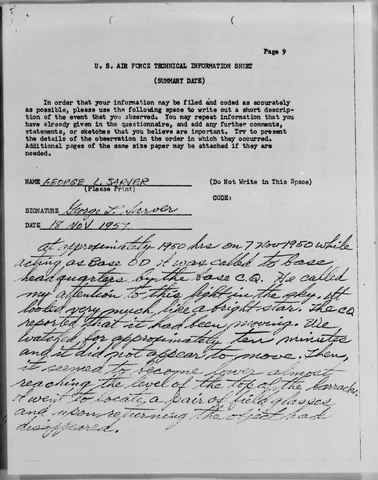 Page 9
U. S. AIR FORCE TECHNICAL INFORMATION SHEET
(SUMMARY DATE)
In order that your information may be filed and coded as accurately
as possible, please use the following space to write out a short descrip-
tion of the event that you observed. You may repeat information that you
have already given in the questionnaire, and add any further comments,
statements, or sketches that you believe are important. Try to present
the details of the observation in the order in which they occurred.
Additional pages of the same size paper may be attached if they are
needed.
NAME GEORGE L. SARVER (Do Not Write in This Space)
(Please Print)
CODE:
SIGNATURE George L. Sarver
DATE 18 NOV 1957
At approximately 1950 hrs on 7 Nov 1950 while
acting as Base OD I was called to base
headquarters by the Base C.Q. He called
my attention to this light in the sky. It
looked very much like a bright star. The CQ
reported that it had been moving. We
watched for approximately ten minutes
and it did not appear to move. Then,
it seemed to become lower almost
reaching the level of the top of the barracks.
I went to locate a pair of field glasses
and upon returning the object had
disappeared.